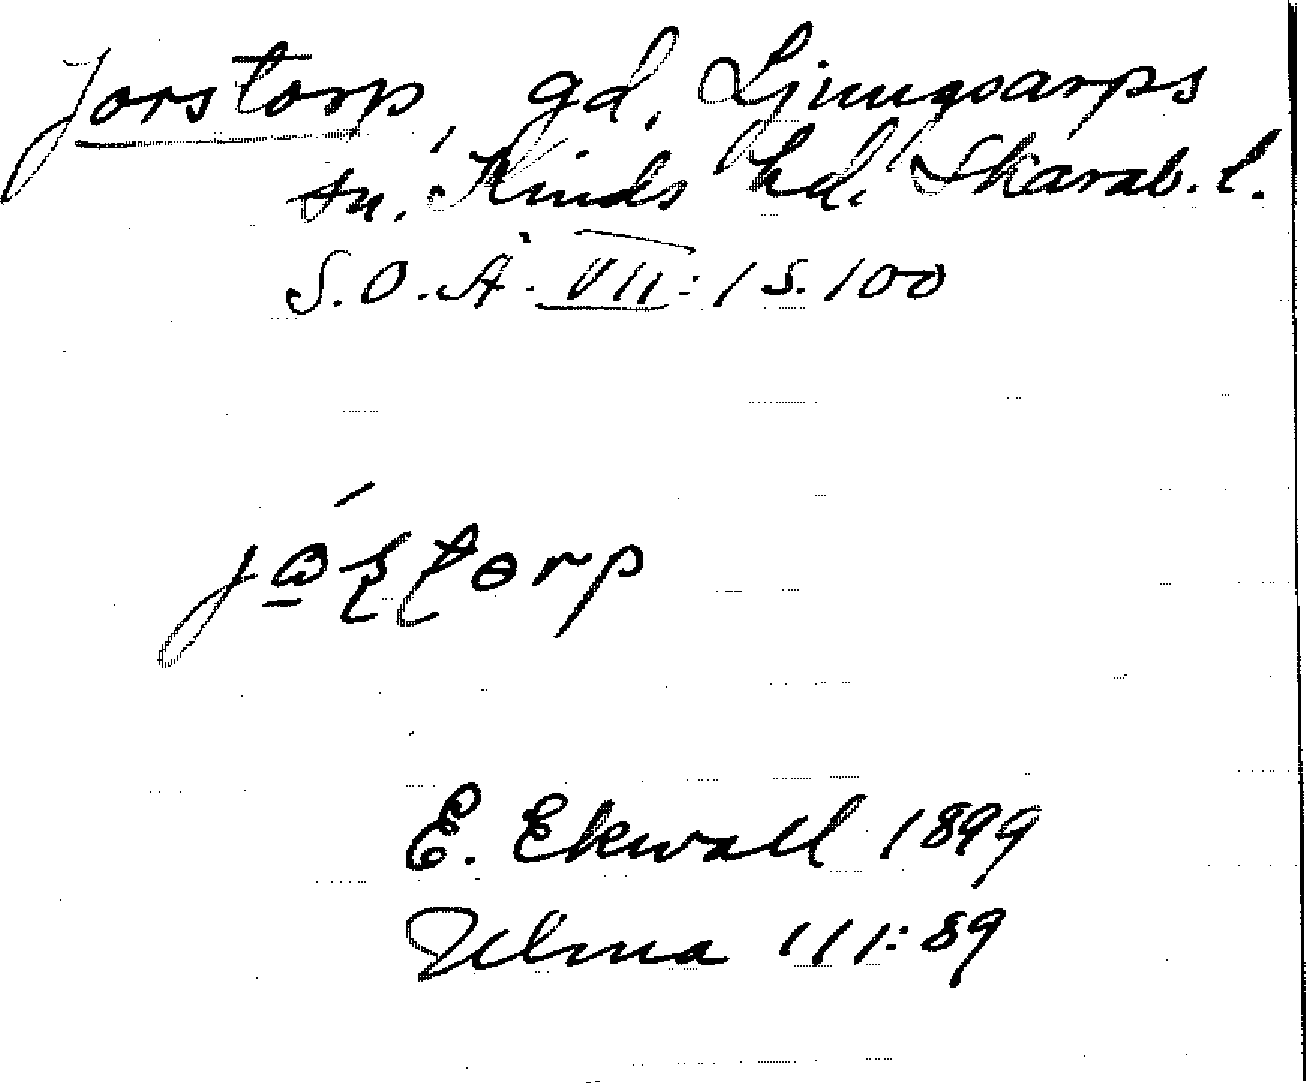 Jorstorp, gd, Ljungsarps
sn. Kinds hd. Skarab. l.
S.O.Ä. VII:1 S.100
E. Ekwall 1899
Ulma 111:89